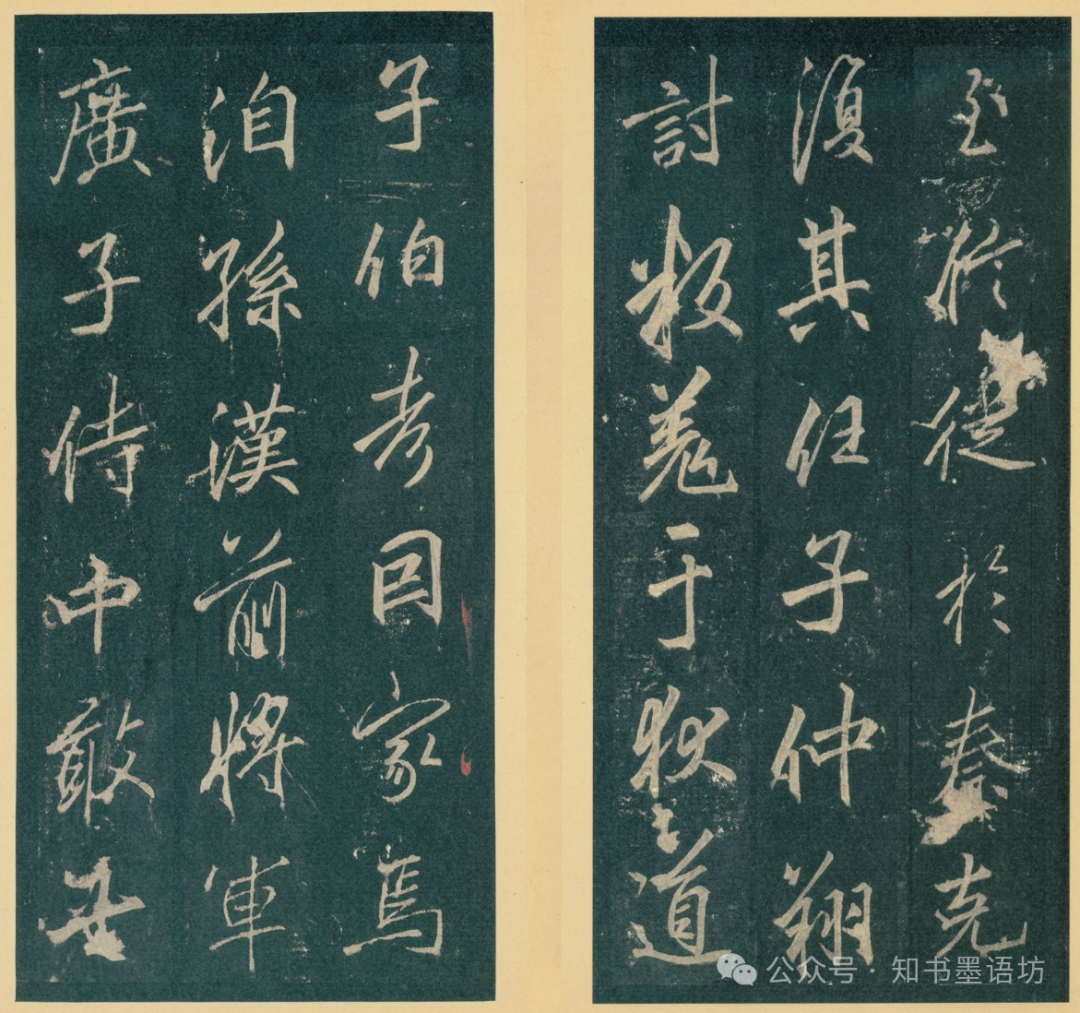 至於徙於秦克
復其任子仲翔
討叛羌于狄道
子伯考因家焉
洎孫漢前將軍
廣子侍中敢
公众号·知书墨语坊